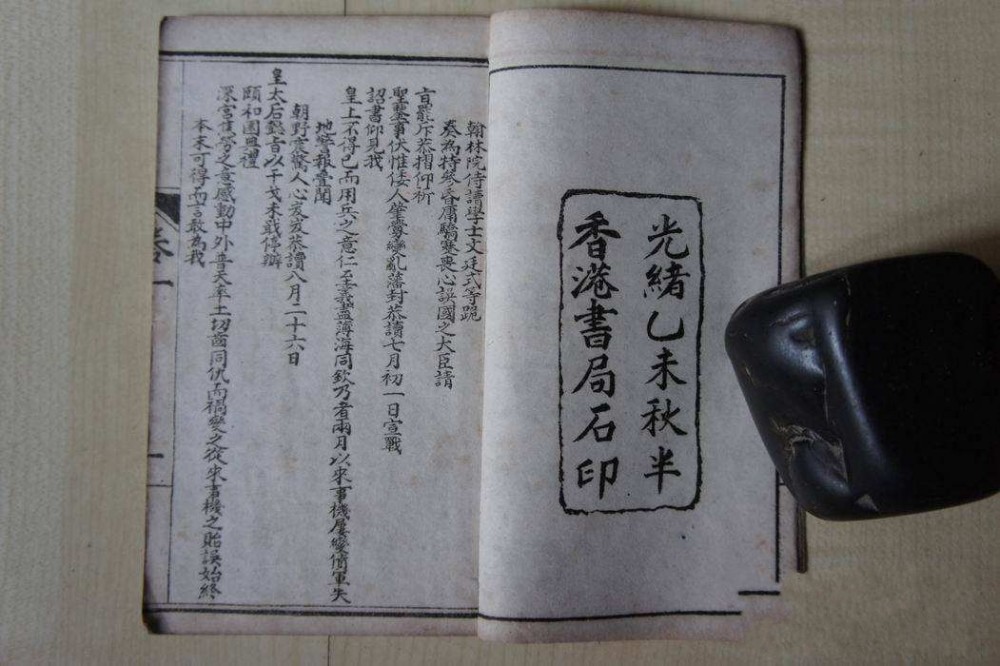 光緒乙未秋半
香港書局石印
翰林院侍讀學士文廷式等跪
奏為特參昏庸驕蹇喪心誤國之大臣請
旨罷斥恭摺仰祈
聖鑒事伏惟倭人肇釁變亂藩封恭讀七月初一日宣戰
詔書仰見我
皇上不得已而用兵之意仁至義盡薄海同欽乃者兩月以來事機屢變債軍失
地警報疊聞
朝野震驚人心岌岌恭讀八月二十六日
皇太后懿旨以干戈未戢停辦
頤和園典禮
深宮焦勞之意感動中外普天率土切齒同仇而禍變之從來事機之貽誤始終
本末可得而言敢為我
卷一